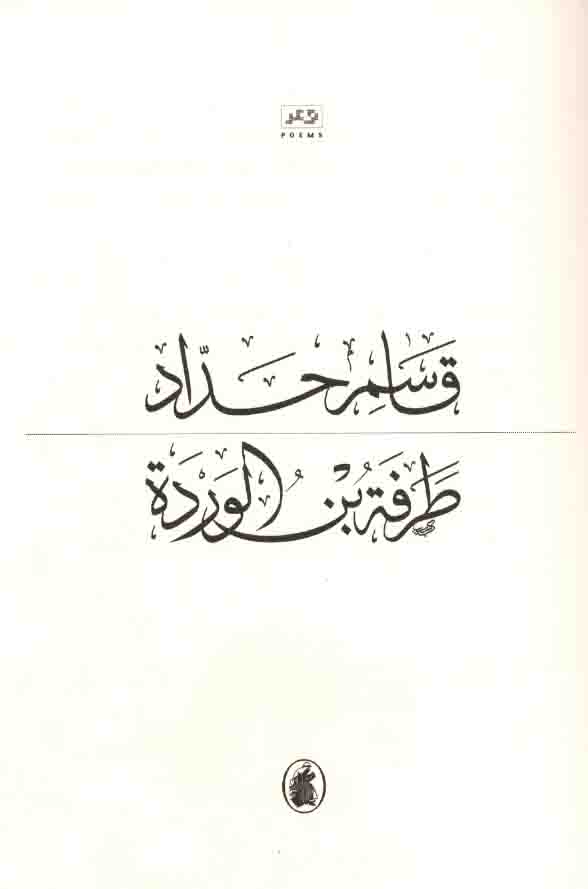 شعر
POEMS
قَاسِم حَدّاد
طَرَفَة بْنُ الوَرْدَة